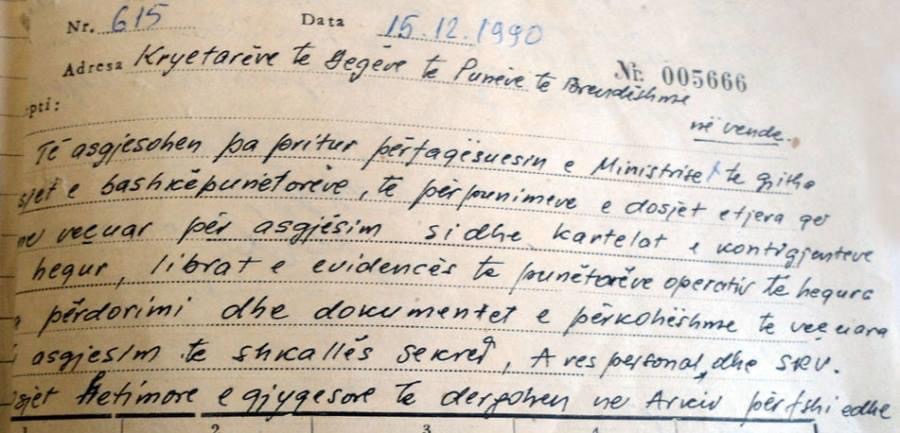 Nr. 615 Data 15.12.1990
Adresa Kryetarëve te Degëve te Punëve te Brendëshme
Nr. 005666
në vende.
Të asgjesohen pa pritur përfaqësuesin e Ministrisë te gjitha
sjet e bashkëpunëtorëve, te përpunimeve e dosjet etjera qe
ne veçuar për asgjësim sidhe kartelat e kontigjenteve
hequr, librat e evidencës te punëtorëve operativ të hequra
përdorimi dhe dokumentet e përkohëshme te veçuara
asgjesim te shkallës sekret, A res personal, dhe SRV.
sjet Hetimore e gjyqesore te dergohen ne Arkiv përfshi edhe
2 3 4